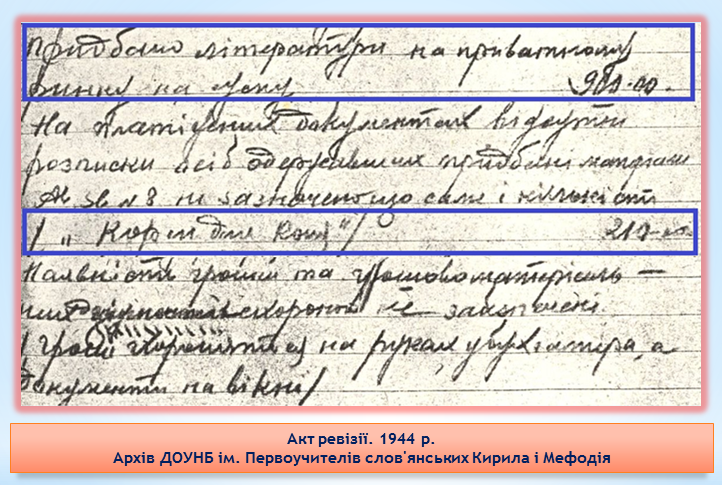 Придбано літератури на приватному
ринку на суму 980-00.
На платіжних документах відсутні
розписки осіб одержавших придбані матеріали
не зазначено що саме і кількість
/ „ Корм для коня "/ 210-00
Наявність грошей та грошовоматеріаль-
них схоронності не зазначені.
/ гроші на руках у бухгалтера, а
документи на вікні/
Акт ревізії. 1944 р.
Архів ДОУНБ ім. Первоучителів слов'янських Кирила і Мефодія